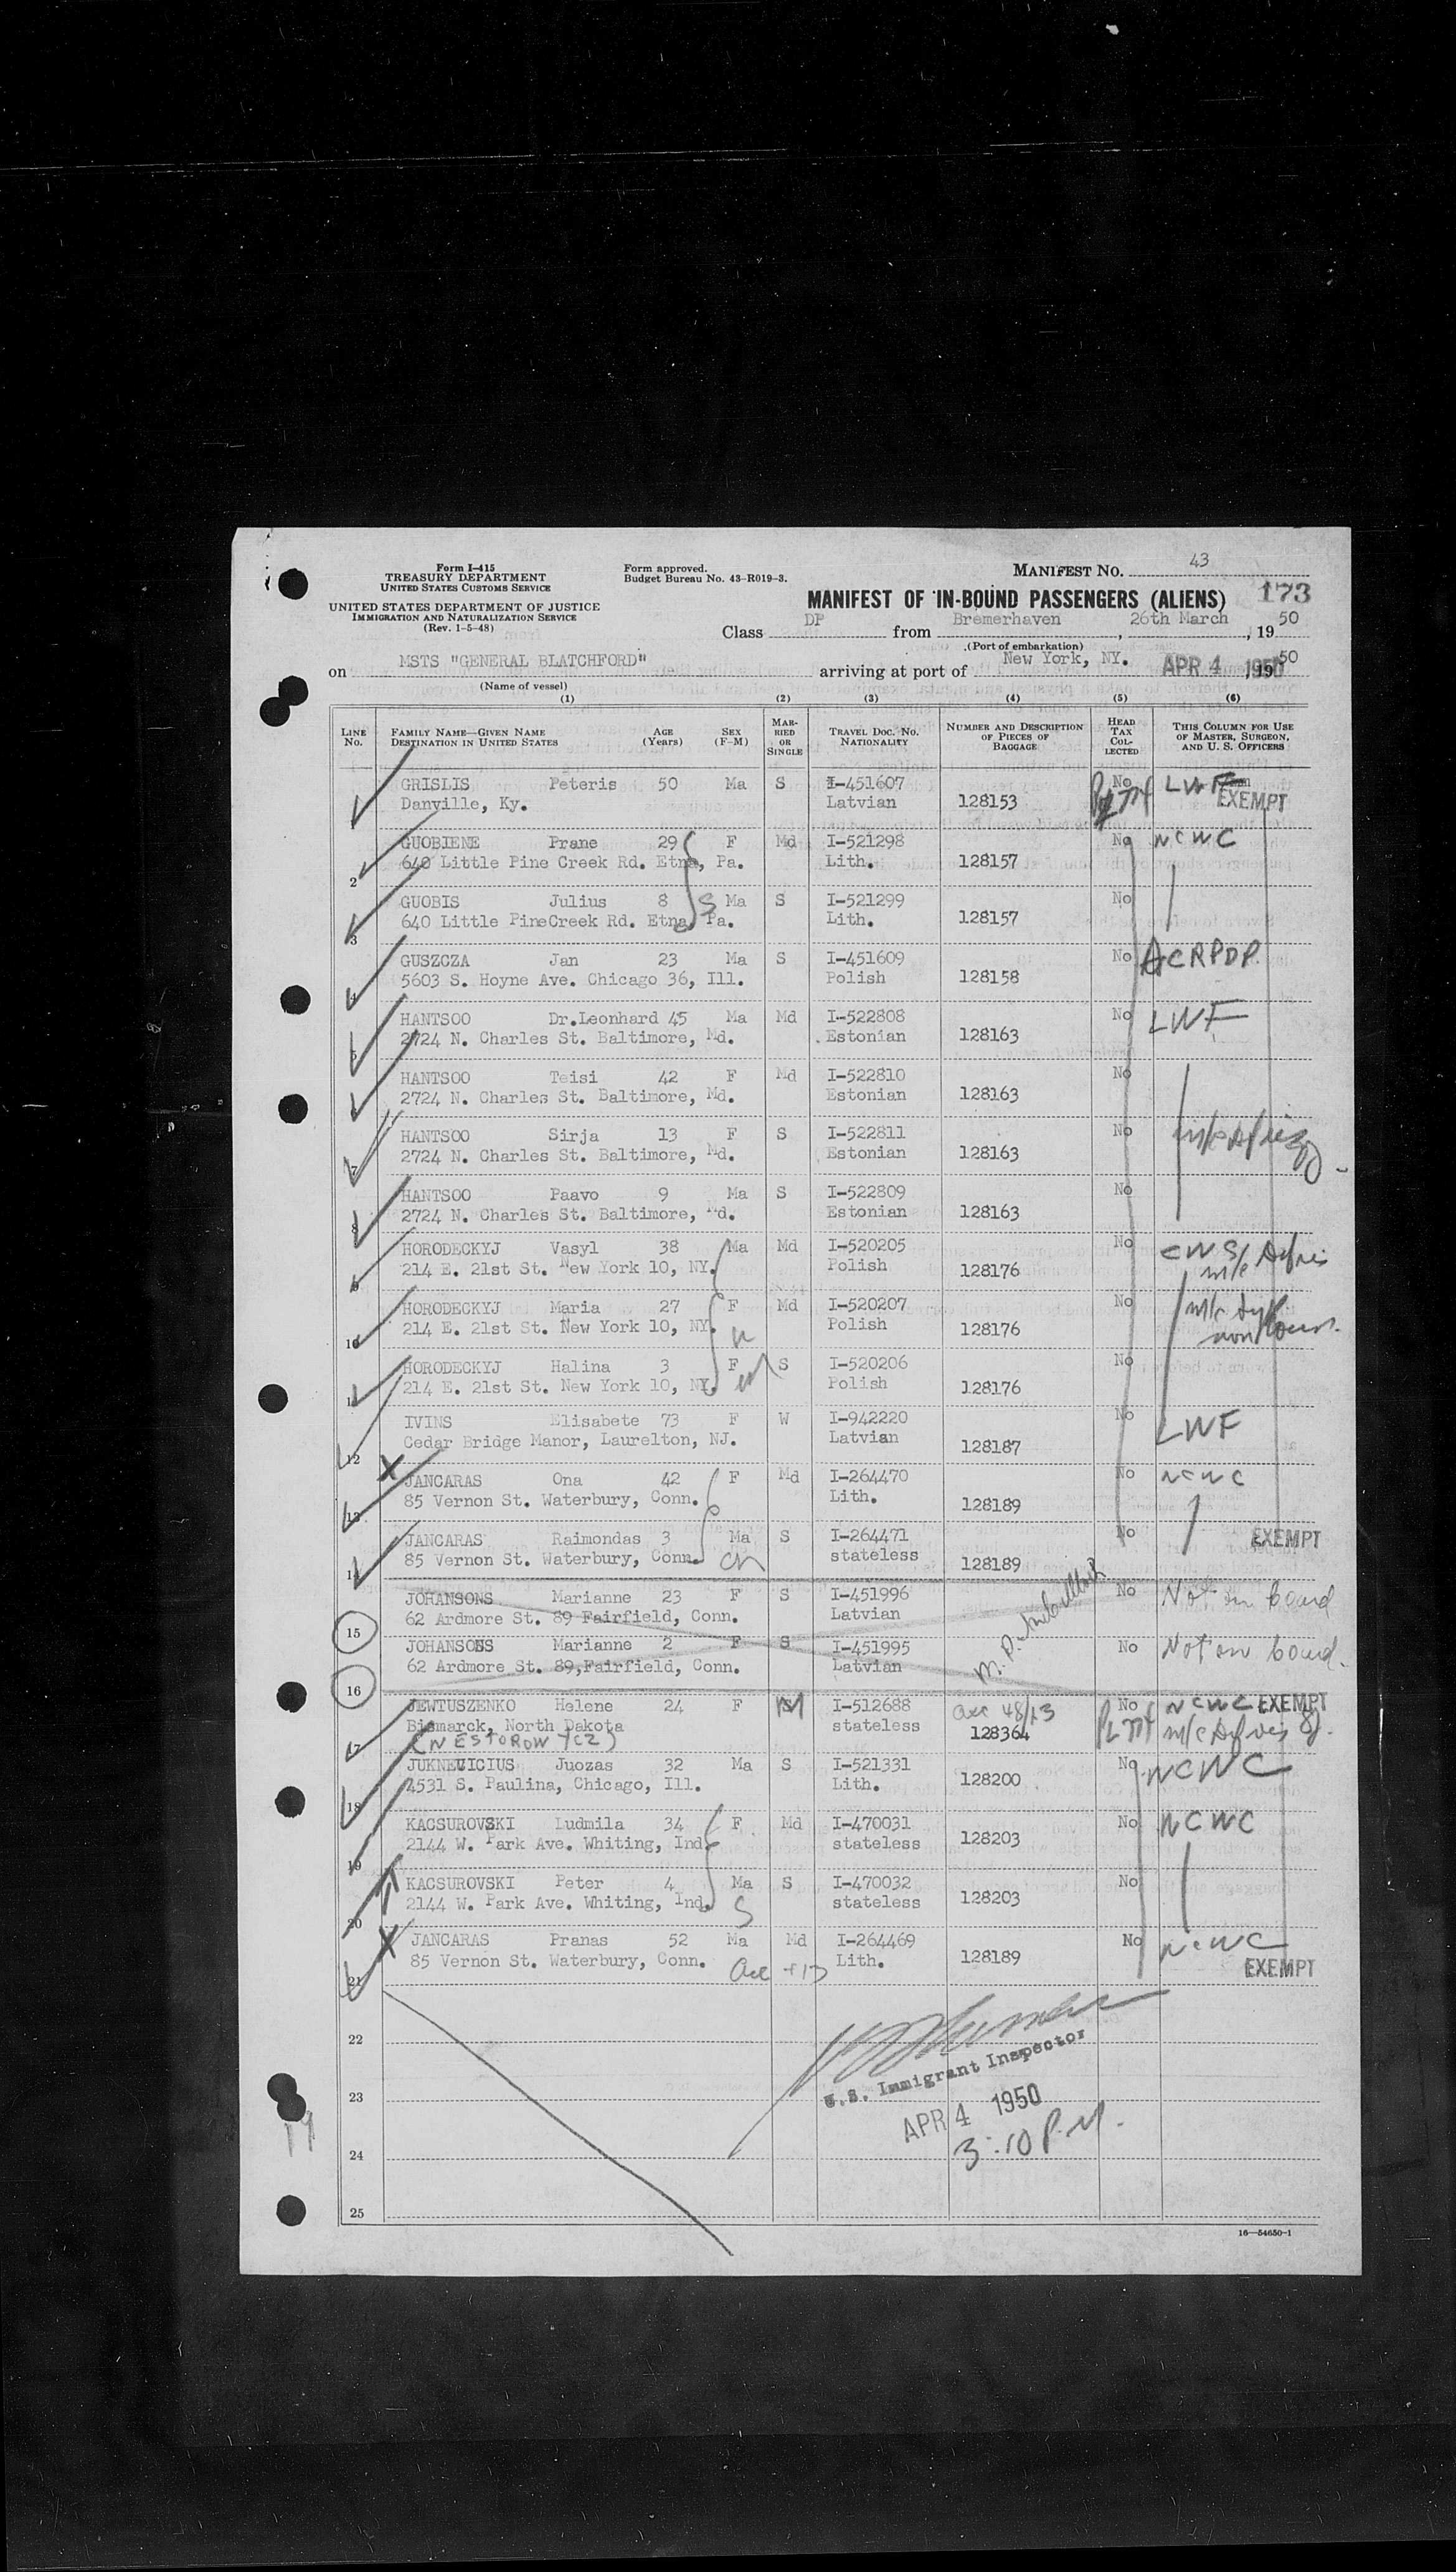 Form I-415
TREASURY DEPARTMENT
UNITED STATES CUSTOMS SERVICE
UNITED STATES DEPARTMENT OF JUSTICE
IMMIGRATION AND NATURALIZATION SERVICE
(Rev. 1-5-48)
Form approved.
Budget Bureau No. 43-R019-3.
MANIFEST NO. 43
MANIFEST OF IN-BOUND PASSENGERS (ALIENS) 173
Class DP from Bremerhaven, 26th March, 1950
(Port of embarkation)
on MSTS "GENERAL BLATCHFORD" arriving at port of New York, NY. APR 4 1950, 1950
(Name of vessel)
(1) (2) (3) (4) (5) (6)
LINE No. FAMILY NAME—GIVEN NAME DESTINATION IN UNITED STATES AGE (Years) SEX (F-M) MARRIED OR SINGLE TRAVEL DOC. NO. NATIONALITY NUMBER AND DESCRIPTION OF PIECES OF BAGGAGE HEAD TAX COLLECTED THIS COLUMN FOR USE OF MASTER, SURGEON, AND U. S. OFFICERS
GRISLIS Peteris 50 Ma S I-451607 No LWF
Danville, Ky. Latvian 128153 EXEMPT
GUOBIENE Prane 29 F Md I-521298 No NCWC
2 640 Little Pine Creek Rd. Etna, Pa. Lith. 128157
GUOBIS Julius 8 Ma S I-521299 No
3 640 Little PineCreek Rd. Etna, Pa. Lith. 128157
GUSZCZA Jan 23 Ma S I-451609 No ACRPDP
4 5603 S. Hoyne Ave. Chicago 36, Ill. Polish 128158
HANTSOO Dr.Leonhard 45 Ma Md I-522808 No LWF
5 2724 N. Charles St. Baltimore, Md. Estonian 128163
HANTSOO Teisi 42 F Md I-522810 No
6 2724 N. Charles St. Baltimore, Md. Estonian 128163
HANTSOO Sirja 13 F S I-522811 No
7 2724 N. Charles St. Baltimore, Md. Estonian 128163
HANTSOO Paavo 9 Ma S I-522809 No
8 2724 N. Charles St. Baltimore, Md. Estonian 128163
HORODECKYJ Vasyl 38 Ma Md I-520205 No CWS
9 214 E. 21st St. New York 10, NY. Polish 128176
HORODECKYJ Maria 27 F Md I-520207 No
10 214 E. 21st St. New York 10, NY. Polish 128176
HORODECKYJ Halina 3 F S I-520206 No
11 214 E. 21st St. New York 10, NY. Polish 128176
IVINS Elisabete 73 F W I-942220 No LWF
12 Cedar Bridge Manor, Laurelton, NJ. Latvian 128187
X JANCARAS Ona 42 F Md I-264470 No NCWC
13 85 Vernon St. Waterbury, Conn. Lith. 128189
JANCARAS Raimondas 3 Ma S I-264471 No EXEMPT
14 85 Vernon St. Waterbury, Conn. stateless 128189
JOHANSONS Marianne 23 F S I-451996 No Not on board
15 62 Ardmore St. 89 Fairfield, Conn. Latvian
JOHANSONS Marianne 2 F S I-451995 No Not on board.
16 62 Ardmore St. 89,Fairfield, Conn. Latvian
JEWTUSZENKO Helene 24 F M I-512688 No NCWC EXEMPT
17 Bismarck, North Dakota stateless 128364
JUKNEVICIUS Juozas 32 Ma S I-521331 No NCWC
18 4531 S. Paulina, Chicago, Ill. Lith. 128200
KACSUROVSKI Ludmila 34 F Md I-470031 No NCWC
19 2144 W. Park Ave. Whiting, Ind. stateless 128203
KACSUROVSKI Peter 4 Ma S I-470032 No
20 2144 W. Park Ave. Whiting, Ind. stateless 128203
X JANCARAS Pranas 52 Ma Md I-264469 No NCWC
21 85 Vernon St. Waterbury, Conn. Lith. 128189 EXEMPT
22
U.S. Immigrant Inspector
23
APR 4 1950
24 3:10 P.M.
25
16—54650-1